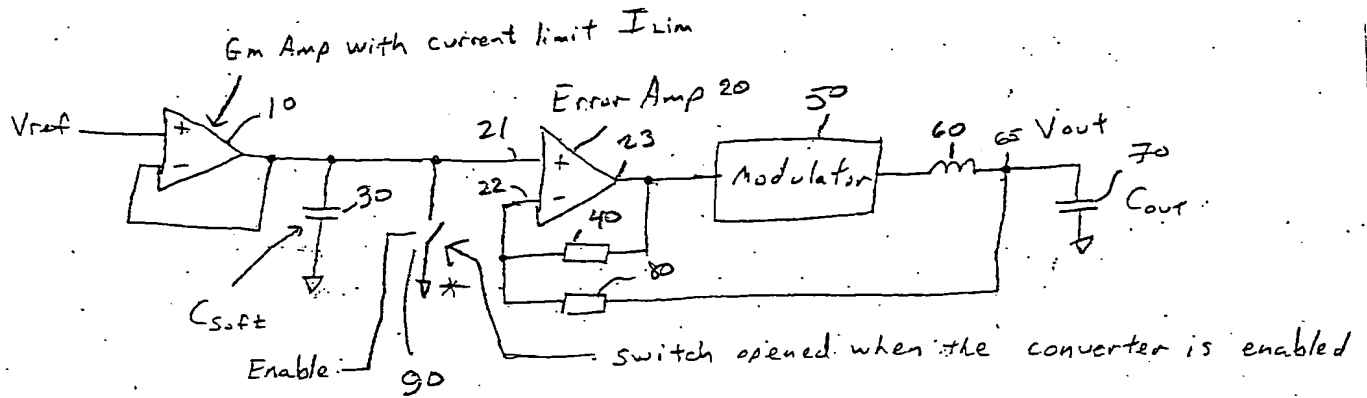 Gm Amp with current limit ILim
10
Vref
+
-
Error Amp 20
21
22
+
-
23
50
Modulator
60
65
Vout
70
Cout
30
40
80
Csoft
*
Enable
90
switch opened when the converter is enabled